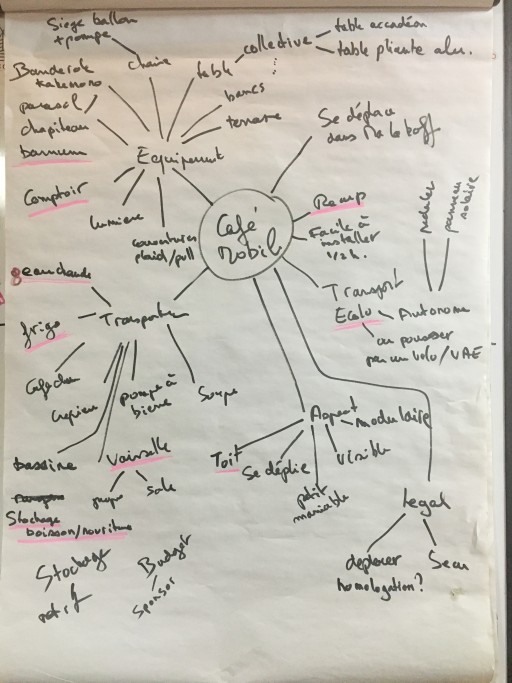 Siège ballon
+ pompe
chaise
table
collective
table accordéon
table pliante alu.
Banderole
Kakemono
parasol
chapiteau
barnum
bancs
terrasse
Equipement
Comptoir
lumière
couvertures
plaid/pull
Se déplace
dans
Café
Mobile
Remp
Facile à
installer
1/2 h.
Transport
Ecolo
Autonome
panneau
solaire
ou pousser
par un vélo/VAE
eau chaude
frigo
Transporter
pompe à
bière
Soupe
bassine
Vaisselle
propre
sale
Stockage
boisson/nourriture
Aspect
modulaire
Toit
Se déplie
petit
maniable
visible
legal
déplacer
homologation?
Secu
Stockage
Budget
Sponsor